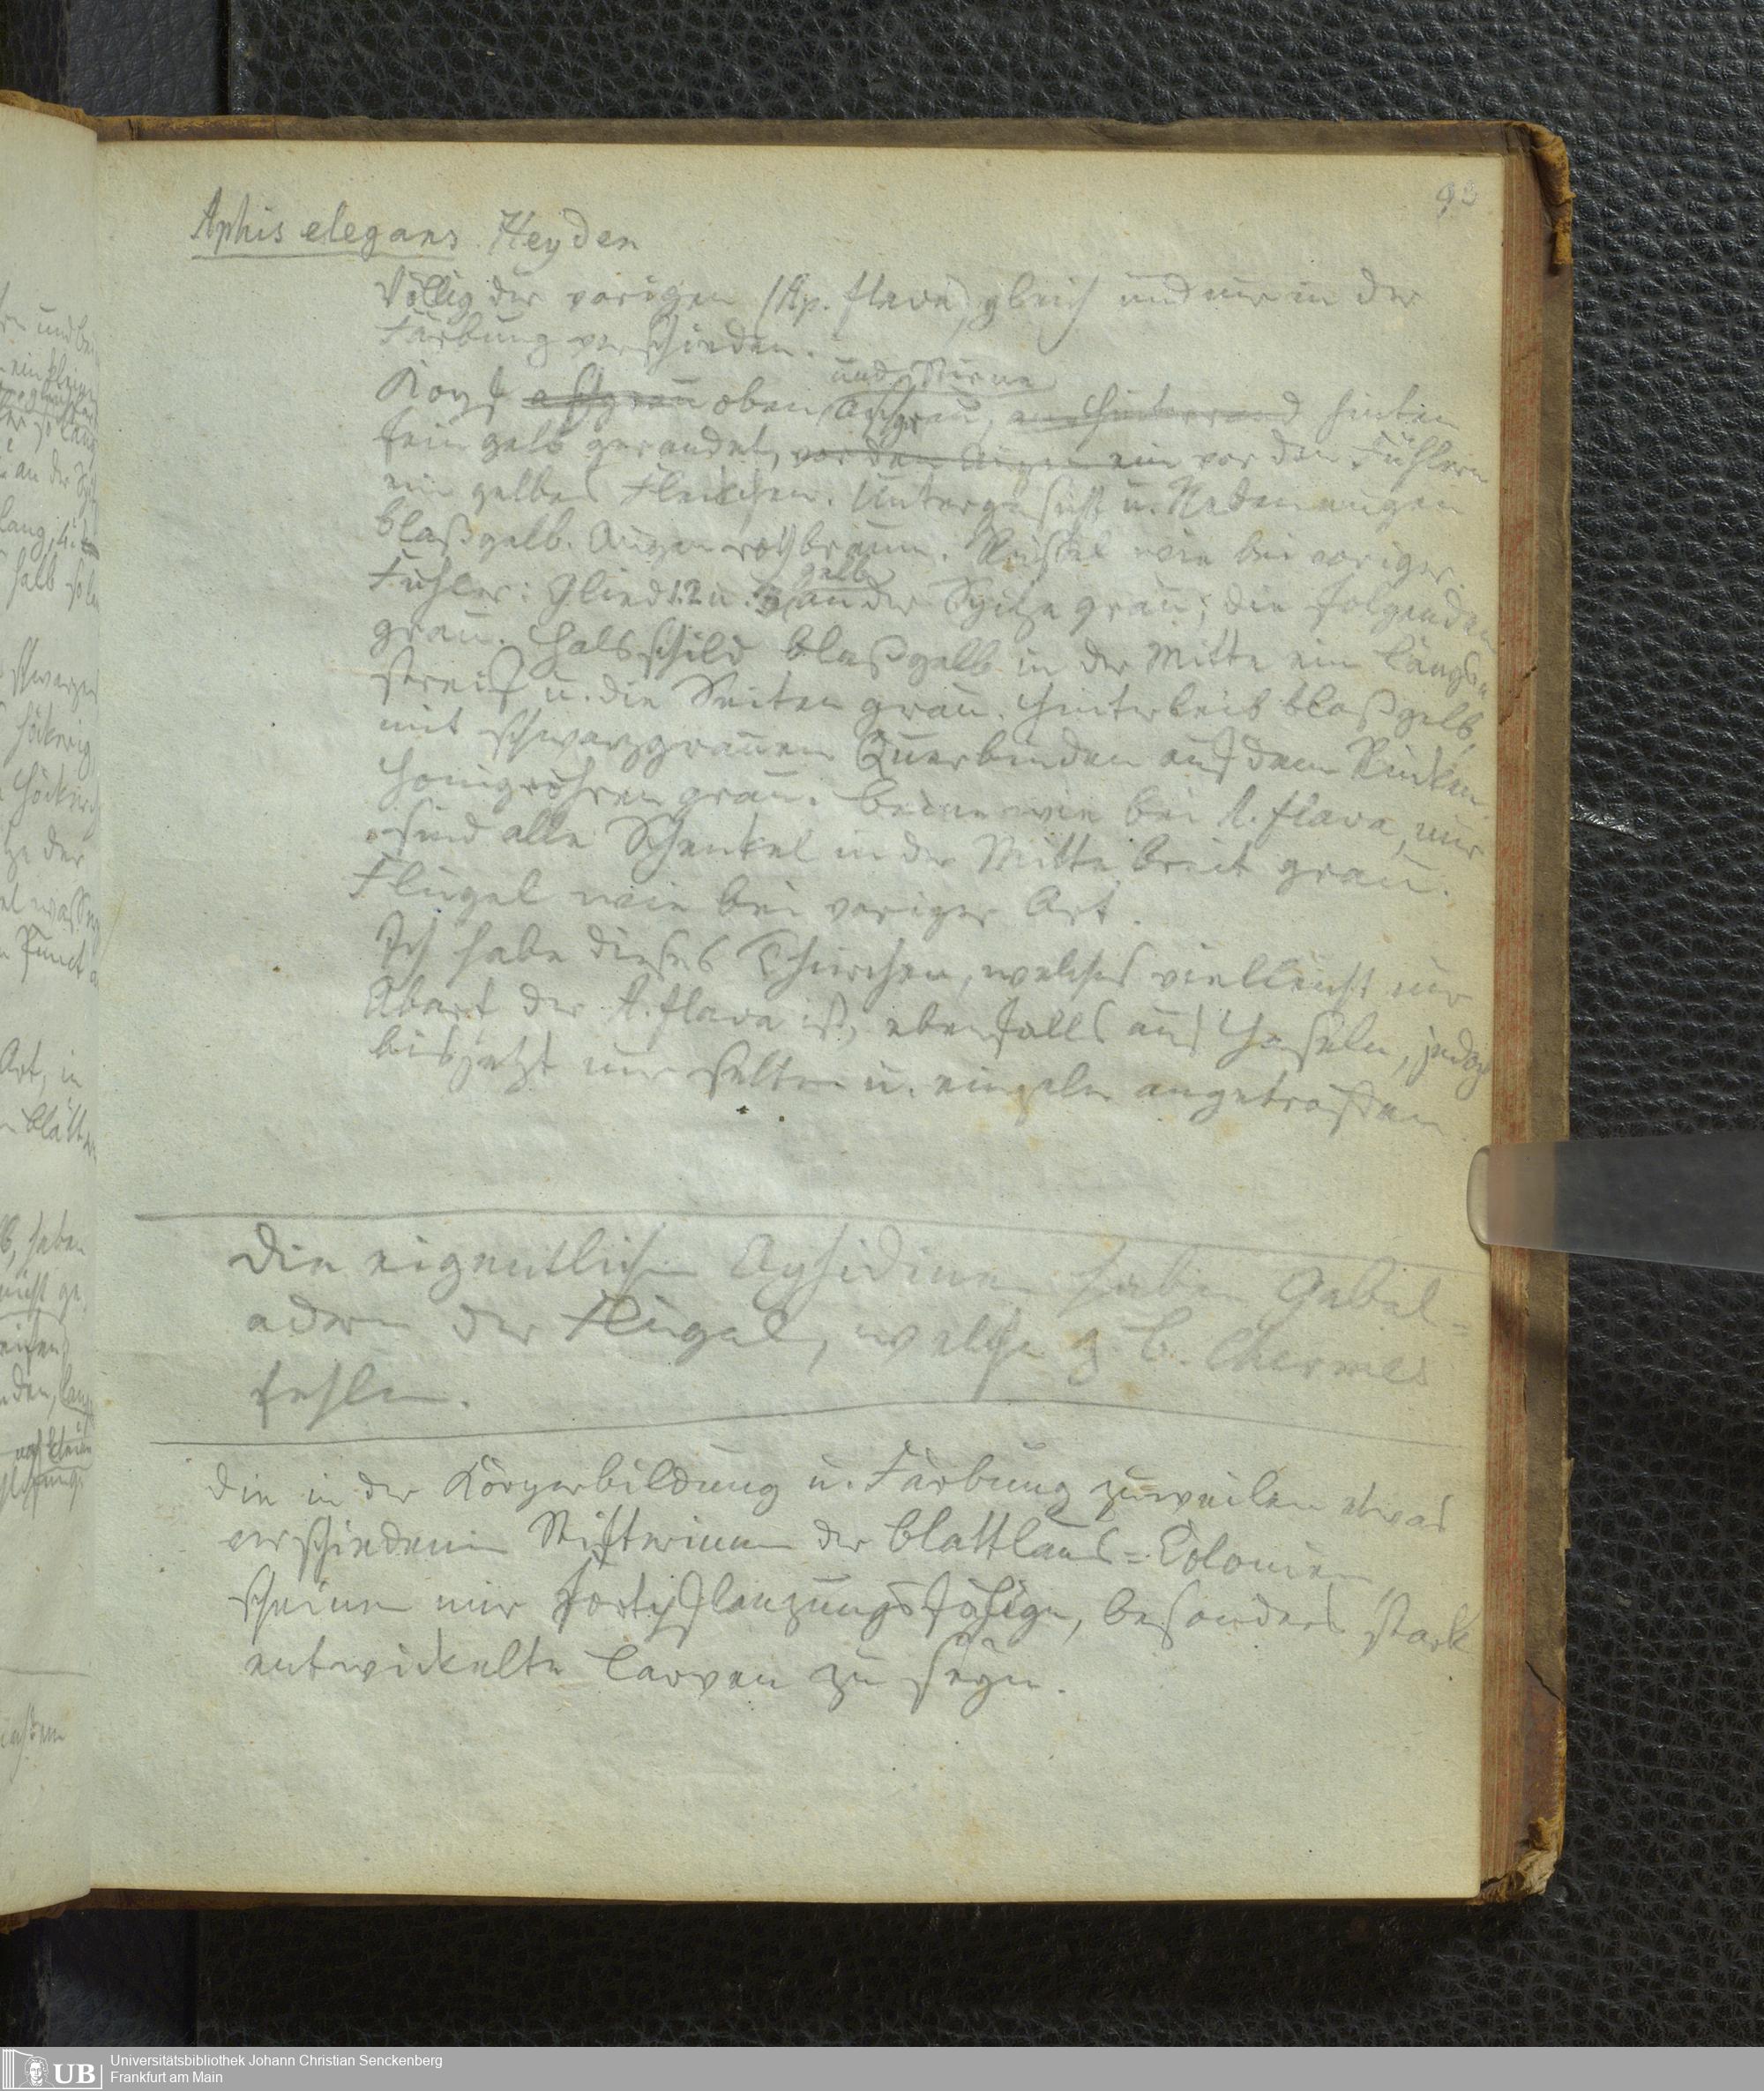 93
Aphis elegans Heyden
Völlig der vorigen (Ap. flava) gleich und nur in der
Färbung verschieden.
und Stirne
Kopf aschgrau oben aschgrau, am Hinterrand hinten
fein gelb gerandet, vor den Augen ein vor den Fühlern
ein gelbes Fleckchen. Untergesicht u. Nebenaugen
blaßgelb. Augen rothbraun. Rüssel wie bei voriger.
gelb
Fühler: Glied 1. 2 u. 3 an der Spitze grau; die folgenden
grau. Halsschild blaßgelb in der Mitte ein Längs-
streif u. die Seiten grau. Hinterleib blaßgelb,
mit schwarzgrauen Querbinden auf dem Rücken
Honigröhren grau. Beine wie bei A. flava, nur
sind alle Schenkel in der Mitte breit grau.
Flügel wie bei voriger Art.
Ich habe dieses Thierchen, welches vielleicht nur
Abart der A. flava ist, ebenfalls auf Haseln, jedoch
bis jetzt nur selten u. einzeln angetroffen.
Die eigentlichen Aphidinen haben Gabel=
adern der Flügel, welche z. B. Chermes
fehlen.
Die in der Körperbildung u. Färbung zuweilen etwas
verschiedenen der Blattlaus=Colonien
scheinen mir fortpflanzungsfähige, besonders stark
entwickelte Larven zu seyn.
UB
Universitätsbibliothek Johann Christian Senckenberg
Frankfurt am Main